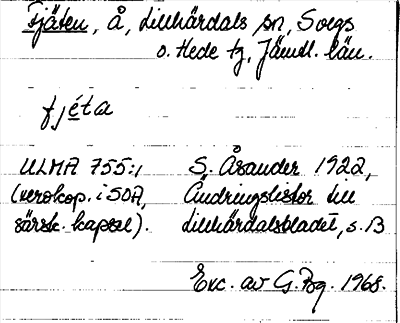 Fjäten, å, Lillhärdals sn, Svegs
o. Hede tg, Jämtl. län.
fjéta
ULMA 755:1 S. Åsander 1922,
(xerokop. i SOA, Ändringslistor till
särsk. kapsel). Lillhärdalsbladet, s. 13
Exc. av G. Bg. 1968.